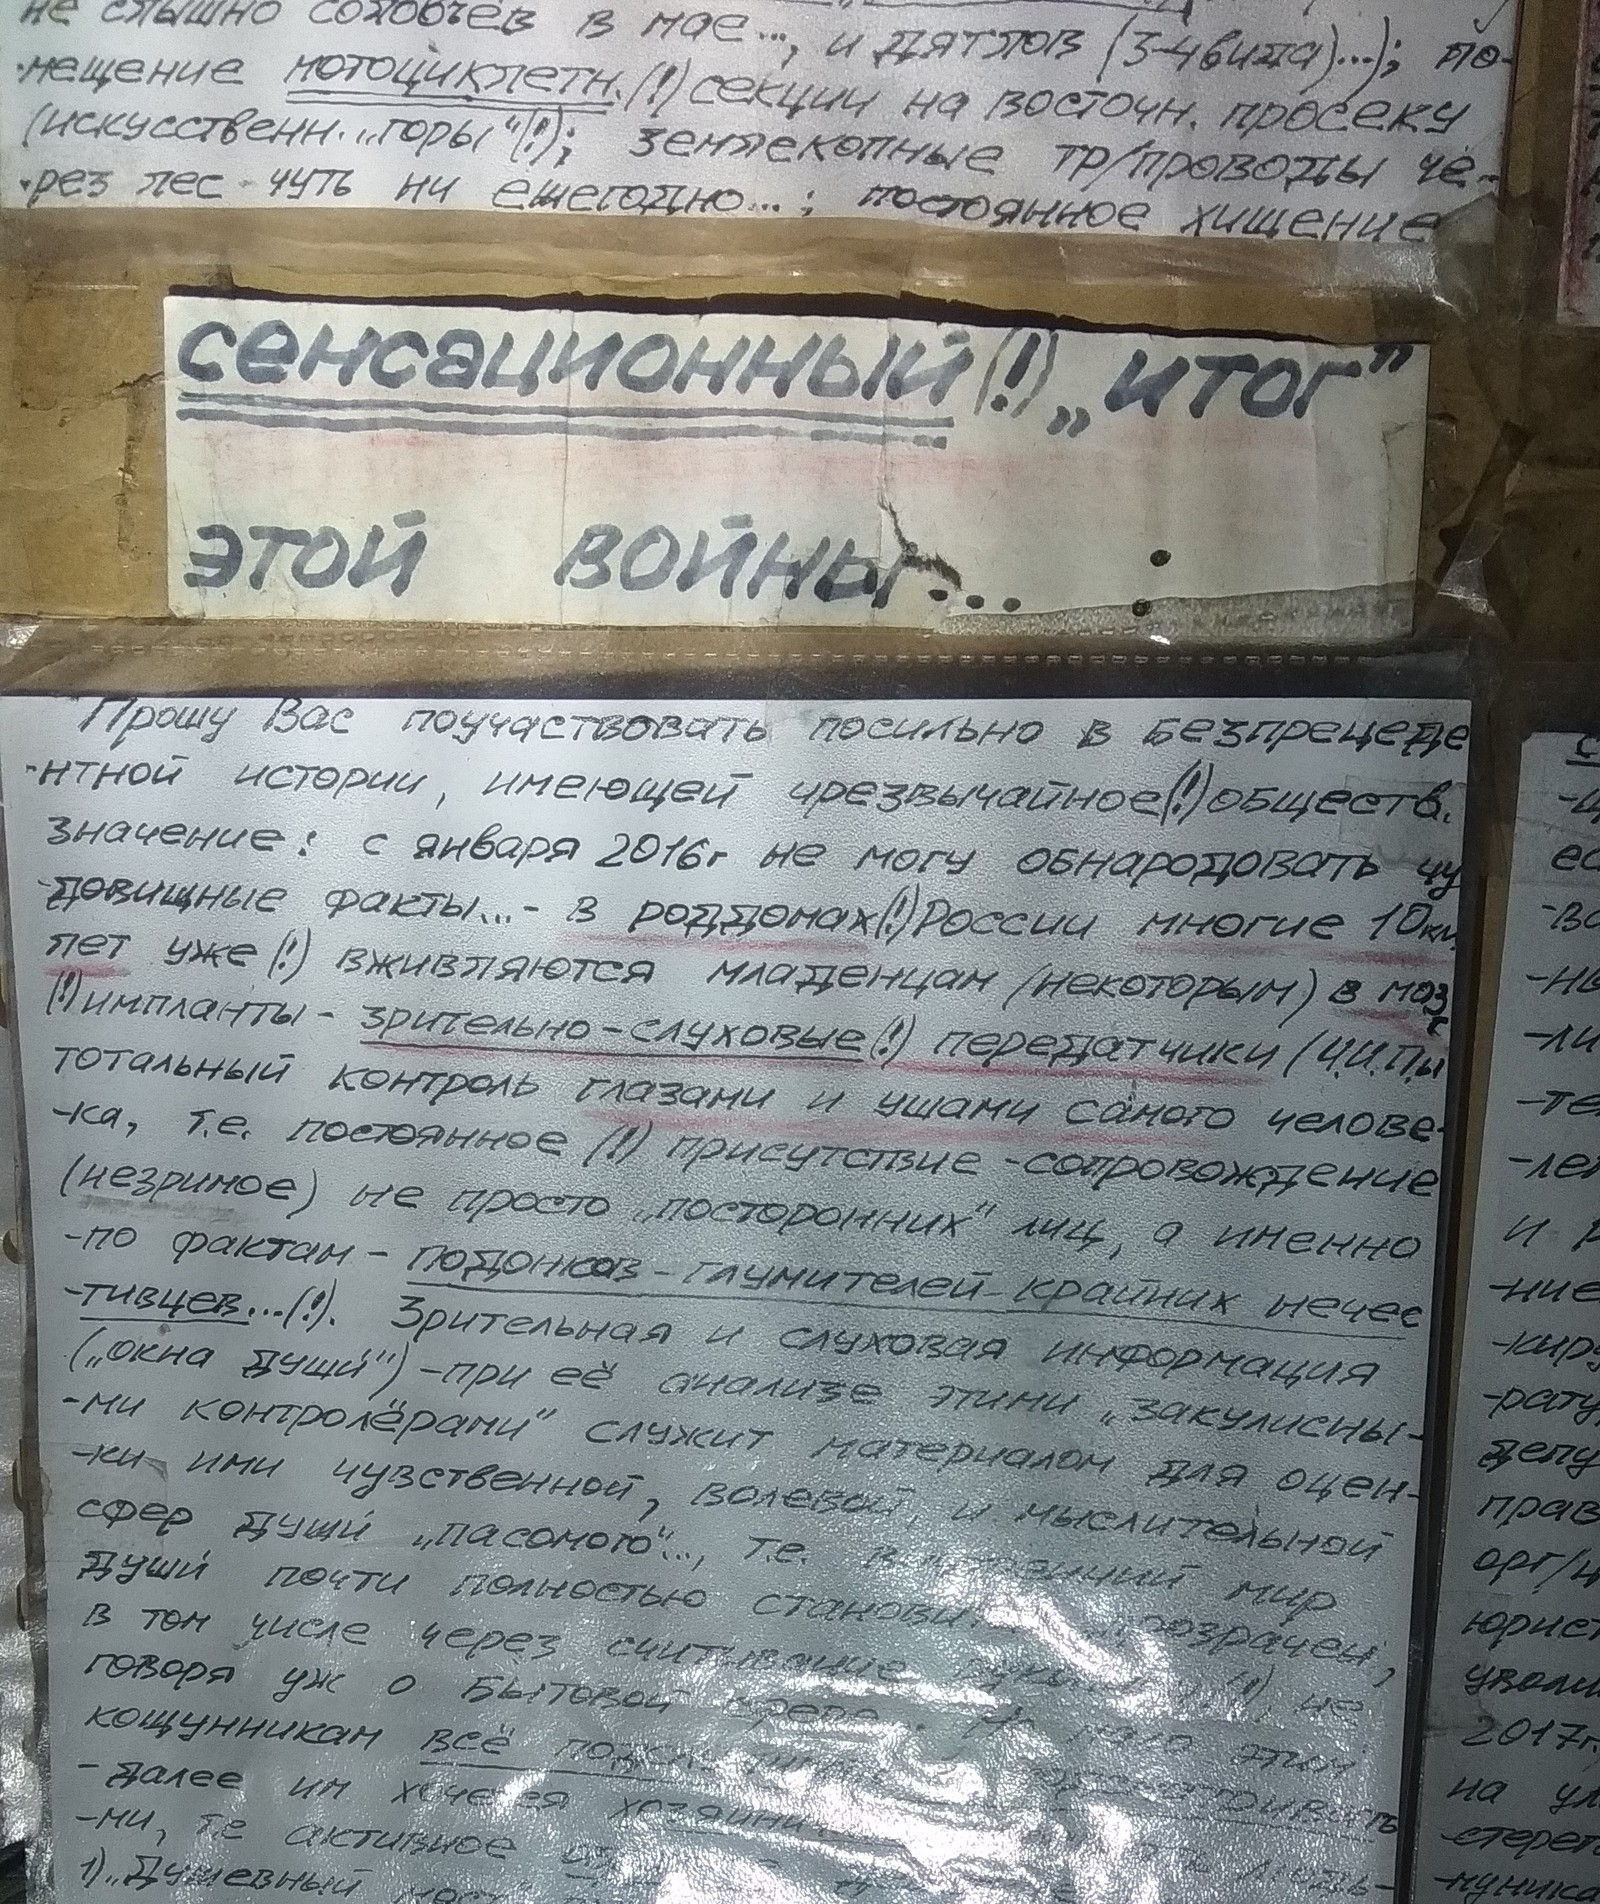 не слышно соловьёв в мае..., и дятлов (3-4 вида)...); по-
-мещение мотоциклетн.(!) секции на восточн. просеку
(искусственн. „горы"(!); землекопные тр/проводы че-
-рез лес чуть ни ежегодно...; постоянное хищение
сенсационный(!) „итог"
этой войны... :
Прошу Вас поучаствовать посильно в безпрецеде
-нтной истории, имеющей чрезвычайное(!) обществ.
значение: с января 2016г не могу обнародовать чу
-довищные факты...- в роддомах(!) России многие 10ки
лет уже(!) вживляются младенцам (некоторым) в мозг
(!) импланты - зрительно-слуховые(!) передатчики (Ч.И.П.ы
тотальный контроль глазами и ушами самого челове-
-ка, т.е. постоянное (!) присутствие -сопровождение
(незримое) не просто „посторонних" лиц, а именно
-по фактам - подонков-глумителей-крайних нечес
-тивцев...(!). Зрительная и слуховая информация
(„окна души́") -при её анализе этими „закулисны-
-ми контролёрами" служит материалом для оцен-
-ки ими чувственной, волевой, и мыслительной
сфер души́ „пасомого"..., т.е. мир
души́ почти полностью прозрачен,
в том числе через считывание (!), не
говоря уж о бытовой этим
кощунникам всё
-далее им хочется
-ми, т.е активное
1) „Душевный
-ц
ес
-во
-ны
-ли
-те
-лен
и р
-ние
-киру
-рату
депу
прав
орг/ц
юрист
уволи
2017г.
на ул
-стерето
-муника